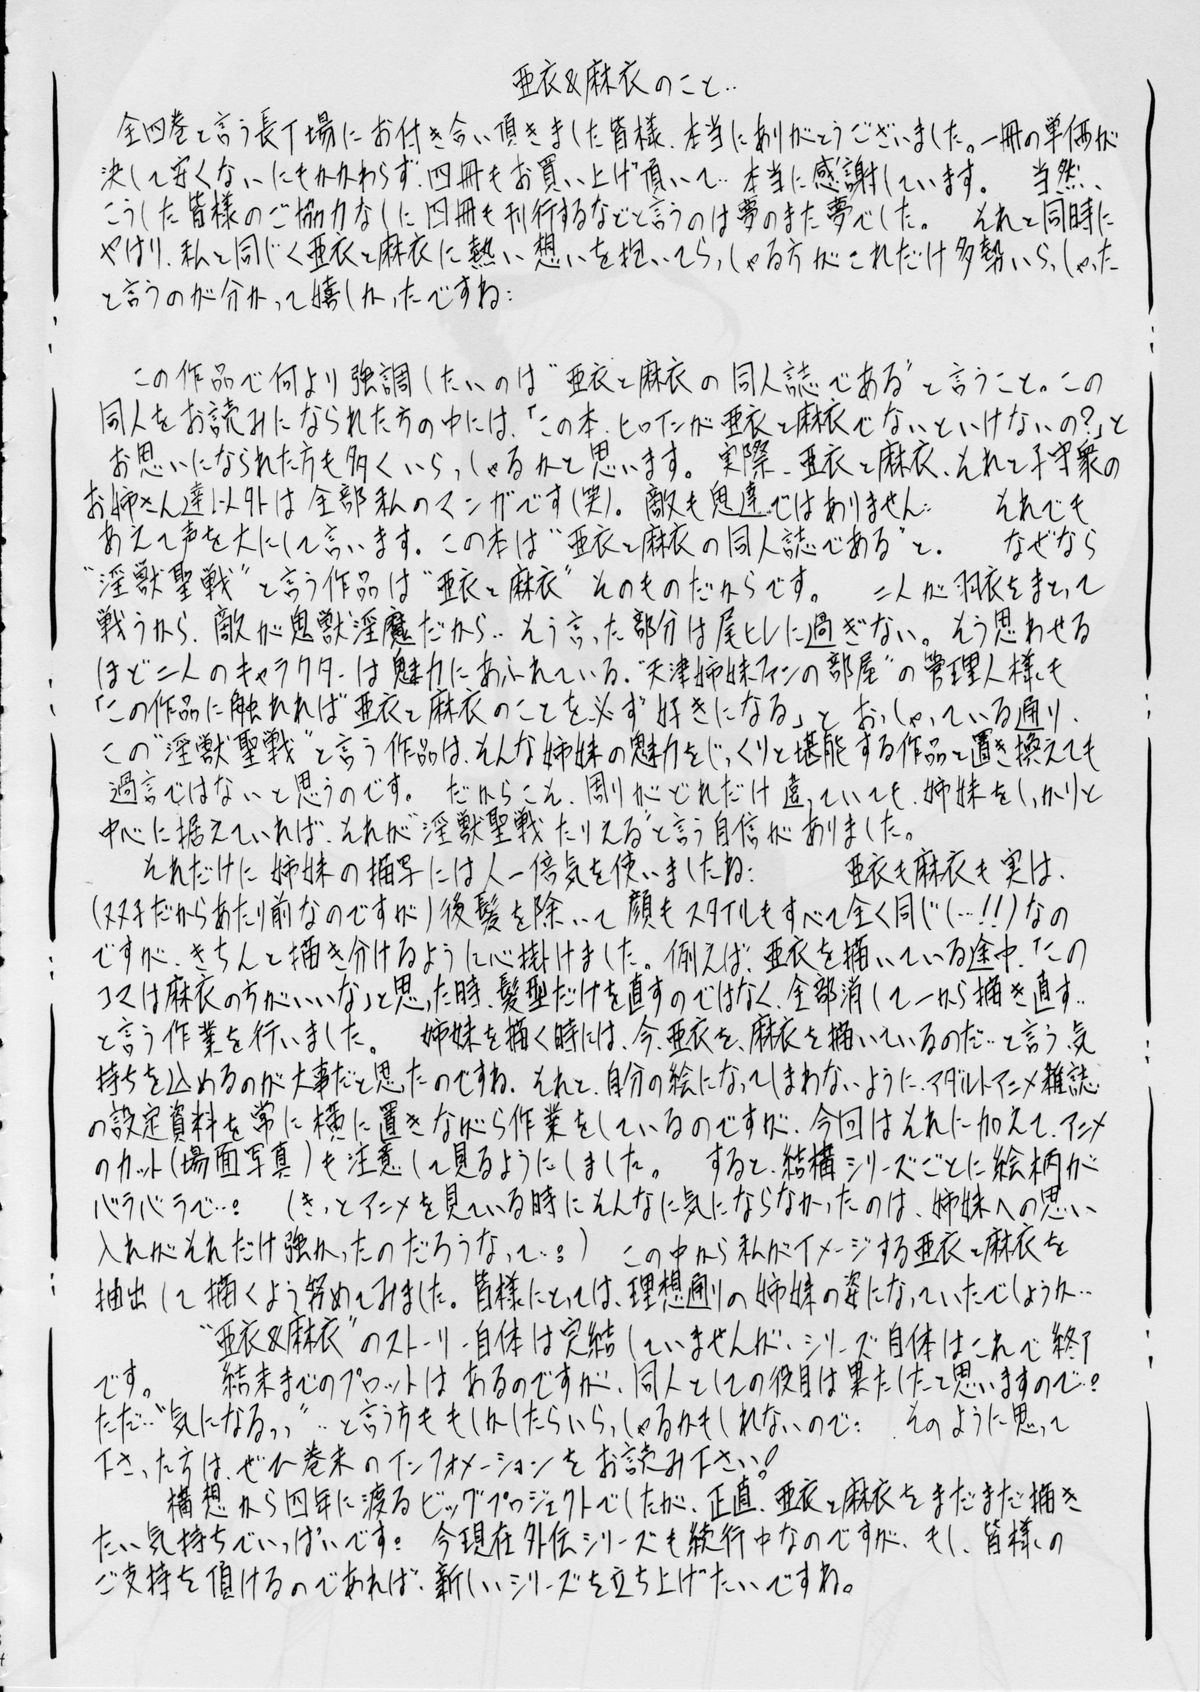 亜衣&麻衣のこと‥
全四巻と言う長丁場にお付き合い頂きました皆様、本当にありがとうございました。一冊の単価が
決して安くないにもかかわらず、四冊もお買い上げ頂いて‥本当に感謝しています。 当然、
こうした皆様のご協力なしに四冊も刊行するなどと言うのは夢のまた夢でした。 それと同時に
やはり、私と同じく亜衣と麻衣に熱い想いを抱いてらっしゃる方がこれだけ多勢いらっしゃった
と言うのが分かって嬉しかったですね:
この作品で何より強調したいのは“亜衣と麻衣の同人誌である”と言うこと。この
同人をお読みになられた方の中には、「この本、ヒロインが亜衣と麻衣でないといけないの?」と
お思いになられた方も多くいらっしゃるかと思います。実際、亜衣と麻衣、それと子守衆の
お姉さん達以外は全部私のマンガです(笑)。敵も鬼達ではありません‥ それでも
あえて声を大にして言います。この本は“亜衣と麻衣の同人誌である”と。 なぜなら
“淫獣聖戦”と言う作品は“亜衣と麻衣”そのものだからです。 二人が羽衣をまとって
戦うから、敵が鬼獣淫魔だから‥そう言った部分は尾ヒレに過ぎない。そう思わせる
ほど二人のキャラクターは魅力にあふれている、“天津姉妹ファンの部屋”の管理人様も
「この作品に触れれば亜衣と麻衣のことを必ず好きになる」とおっしゃっている通り、
この“淫獣聖戦”と言う作品は、そんな姉妹の魅力をじっくりと堪能する作品と置き換えても
過言ではないと思うのです。 だからこそ、周りがどれだけ違っていても、姉妹をしっかりと
中心に据えていれば、それが“淫獣聖戦たりえる”と言う自信がありました。
それだけに姉妹の描写には人一倍気を使いましたね: 亜衣も麻衣も実は、
(双子だからあたり前なのですが)後髪を除いて顔もスタイルもすべて全く同じ(…!!)なの
ですが、きちんと描き分けるように心掛けました。例えば、亜衣を描いている途中、「この
コマは麻衣の方がいいな」と思った時、髪型だけを直すのではなく、全部消して一から描き直す‥
と言う作業を行いました。 姉妹を描く時には、今、亜衣を、麻衣を描いているのだ‥と言う気
持ちを込めるのが大事だと思ったのですね、それと、自分の絵になってしまわないように、アダルトアニメ雑誌
の設定資料を常に横に置きながら作業をしているのですが、今回はそれに加えて、アニメ
のカット(場面写真)も注意して見るようにしました。 すると、結構シリーズごとに絵柄が
バラバラで‥。 (きっとアニメを見ている時にそんなに気にならなかったのは、姉妹への思い
入れがそれだけ強かったのだろうなって‥:) この中から私がイメージする亜衣と麻衣を
抽出して描くよう努めてみました。皆様にとっては、理想通りの姉妹の姿になっていたでしょうか‥
“亜衣&麻衣”のストーリー自体は完結していませんが、シリーズ自体はこれで終了
です。 結末までのプロットはあるのですが、同人としての役目は果たしたと思いますので‥。
ただ‥“気になるっっ”‥と言う方ももしかしたらいらっしゃるかもしれないので: そのように思って
下さった方は、ぜひ巻末のインフォメーションをお読み下さい!
構想から四年に渡るビッグプロジェクトでしたが、正直、亜衣と麻衣をまだまだ描き
たい気持ちでいっぱいです: 今現在外伝シリーズも続行中なのですが、もし、皆様の
ご支持を頂けるのであれば、新しいシリーズを立ち上げたいですね。